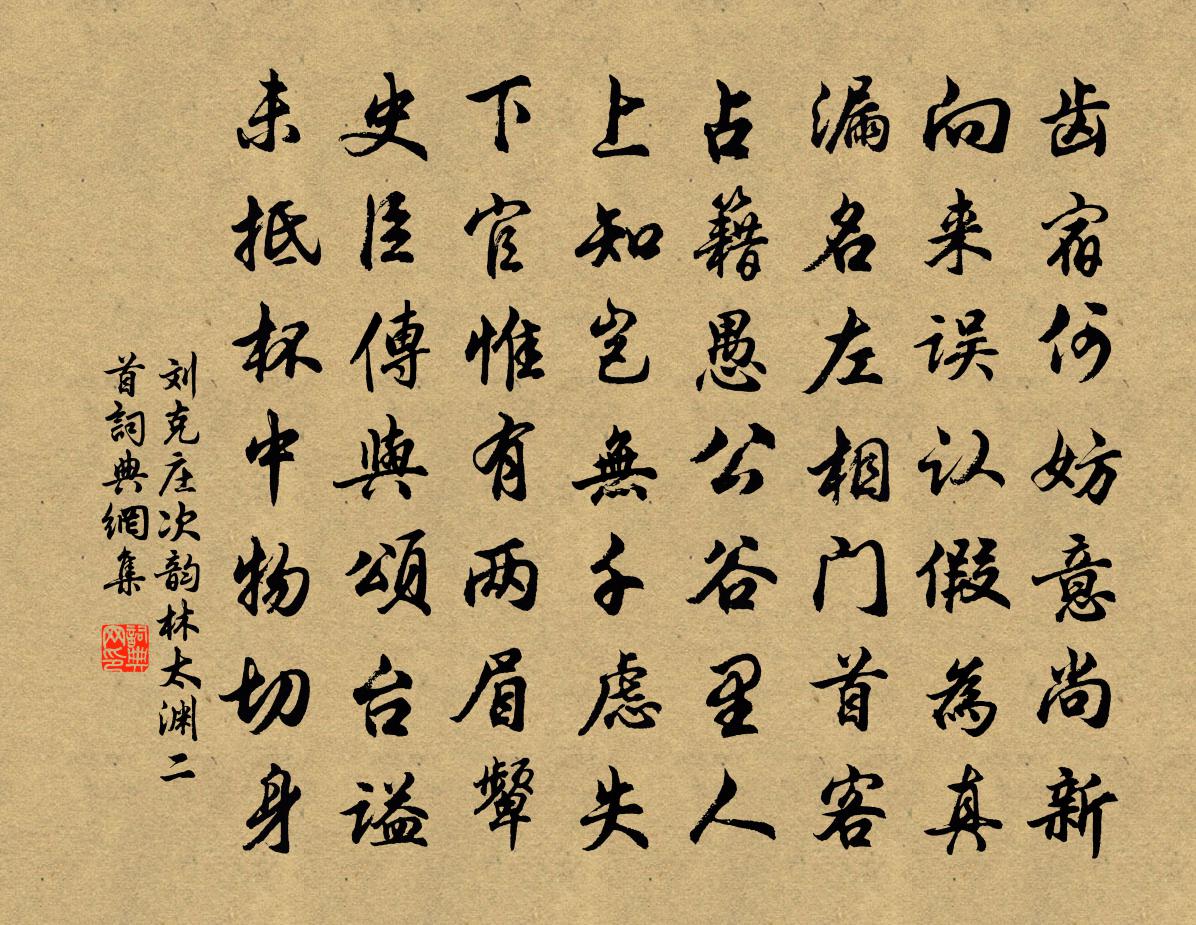 齿宿何妨意尚新
向来误认假為真
漏名左相门首客
占籍愚公谷里人
上知岂無千虑失
下官惟有两眉颦
史臣傳與頌台谥
未抵杯中物切身
刘克庄次韵林太渊二
首詞典網集
詞典
网印